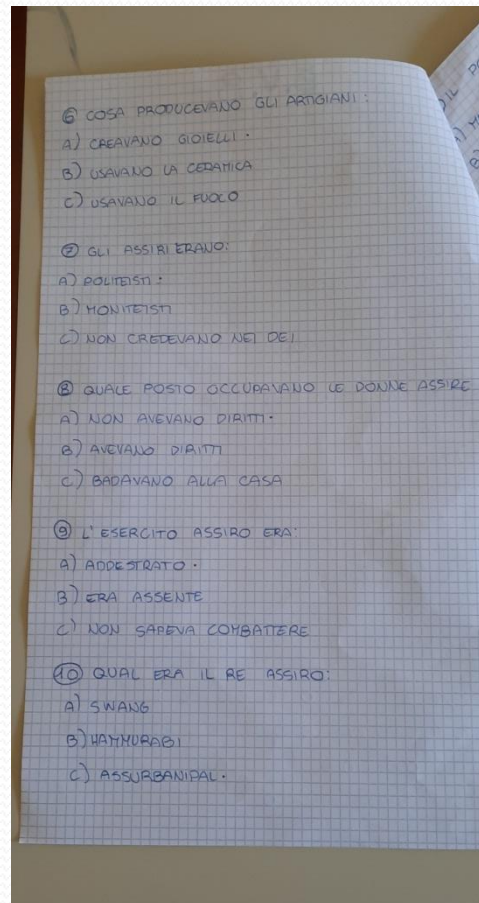 ⑥ COSA PRODUCEVANO GLI ARTIGIANI:
A) CREAVANO GIOIELLI.
B) USAVANO LA CERAMICA
C) USAVANO IL FUOCO
⑦ GLI ASSIRI ERANO:
A) POLITEISTI.
B) MONITEISTI
C) NON CREDEVANO NEI DEI
⑧ QUALE POSTO OCCUPAVANO LE DONNE ASSIRE
A) NON AVEVANO DIRITTI.
B) AVEVANO DIRITTI
C) BADAVANO ALLA CASA
⑨ L'ESERCITO ASSIRO ERA:
A) ADDESTRATO.
B) ERA ASSENTE
C) NON SAPEVA COMBATTERE
⑩ QUAL ERA IL RE ASSIRO:
A) SWANG
B) HAMMURABI
C) ASSURBANIPAL.